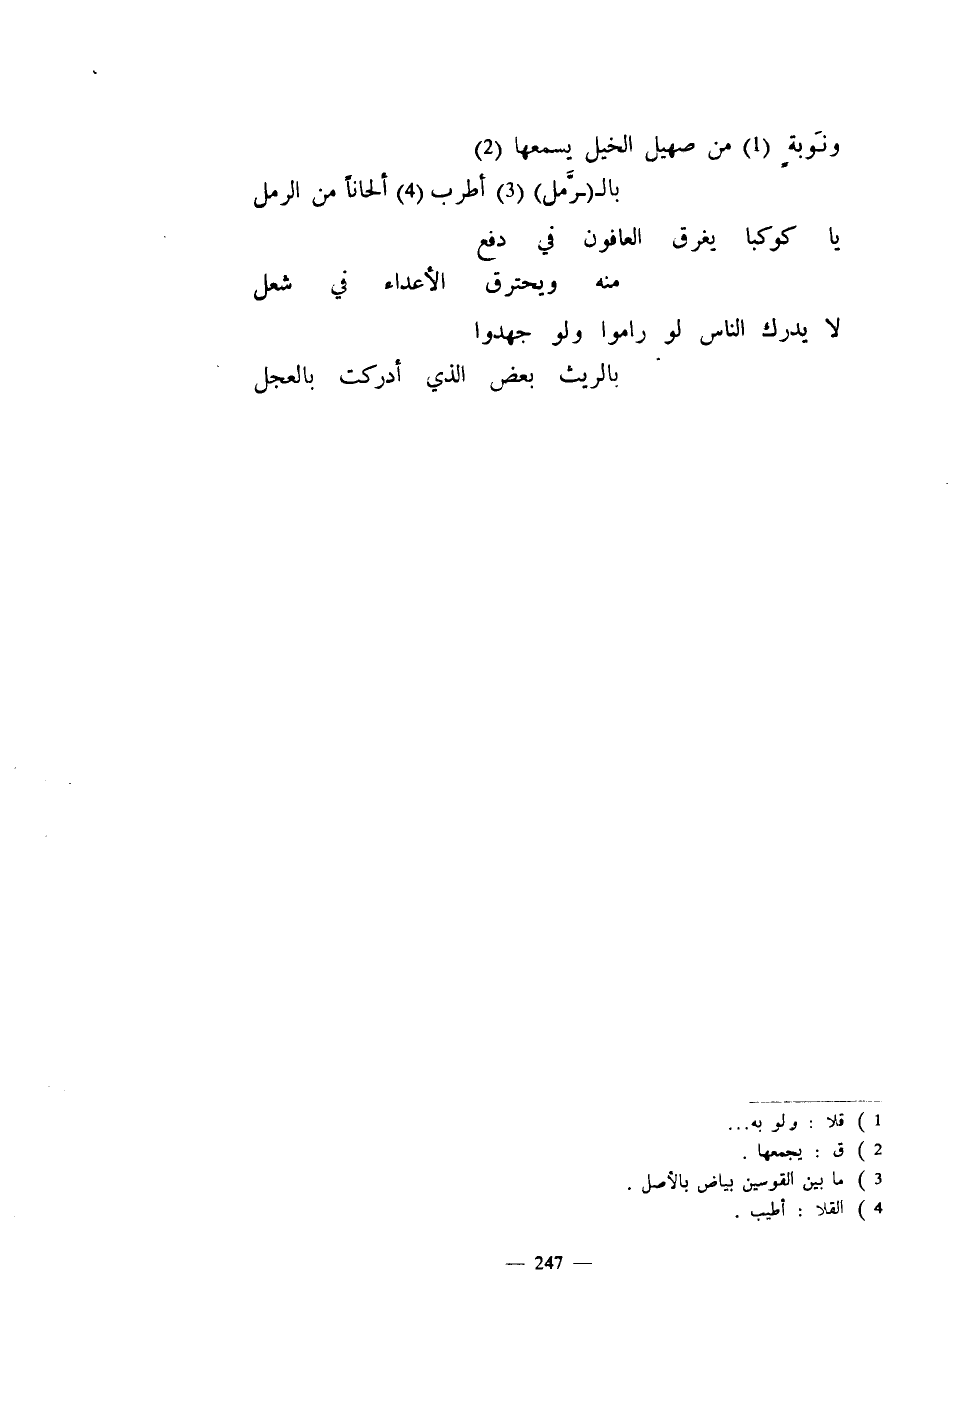 ونَوبةٍ (1) من صهيل الخيل يسمعها (2)
بالـ(ـرَّمل) (3) أطرب (4) ألحاناً من الرمل
يا كوكبا يغرق العافون في دفع
منه ويحترق الأعداء في شعل
لا يدرك الناس لو راموا ولو جهدوا
بالريث بعض الذي أدركت بالعجل
1 ) قلا : ولو به...
2 ) ق : يجمعها .
3 ) ما بين القوسين بياض بالأصل .
4 ) القلا : أطيب .
— 247 —